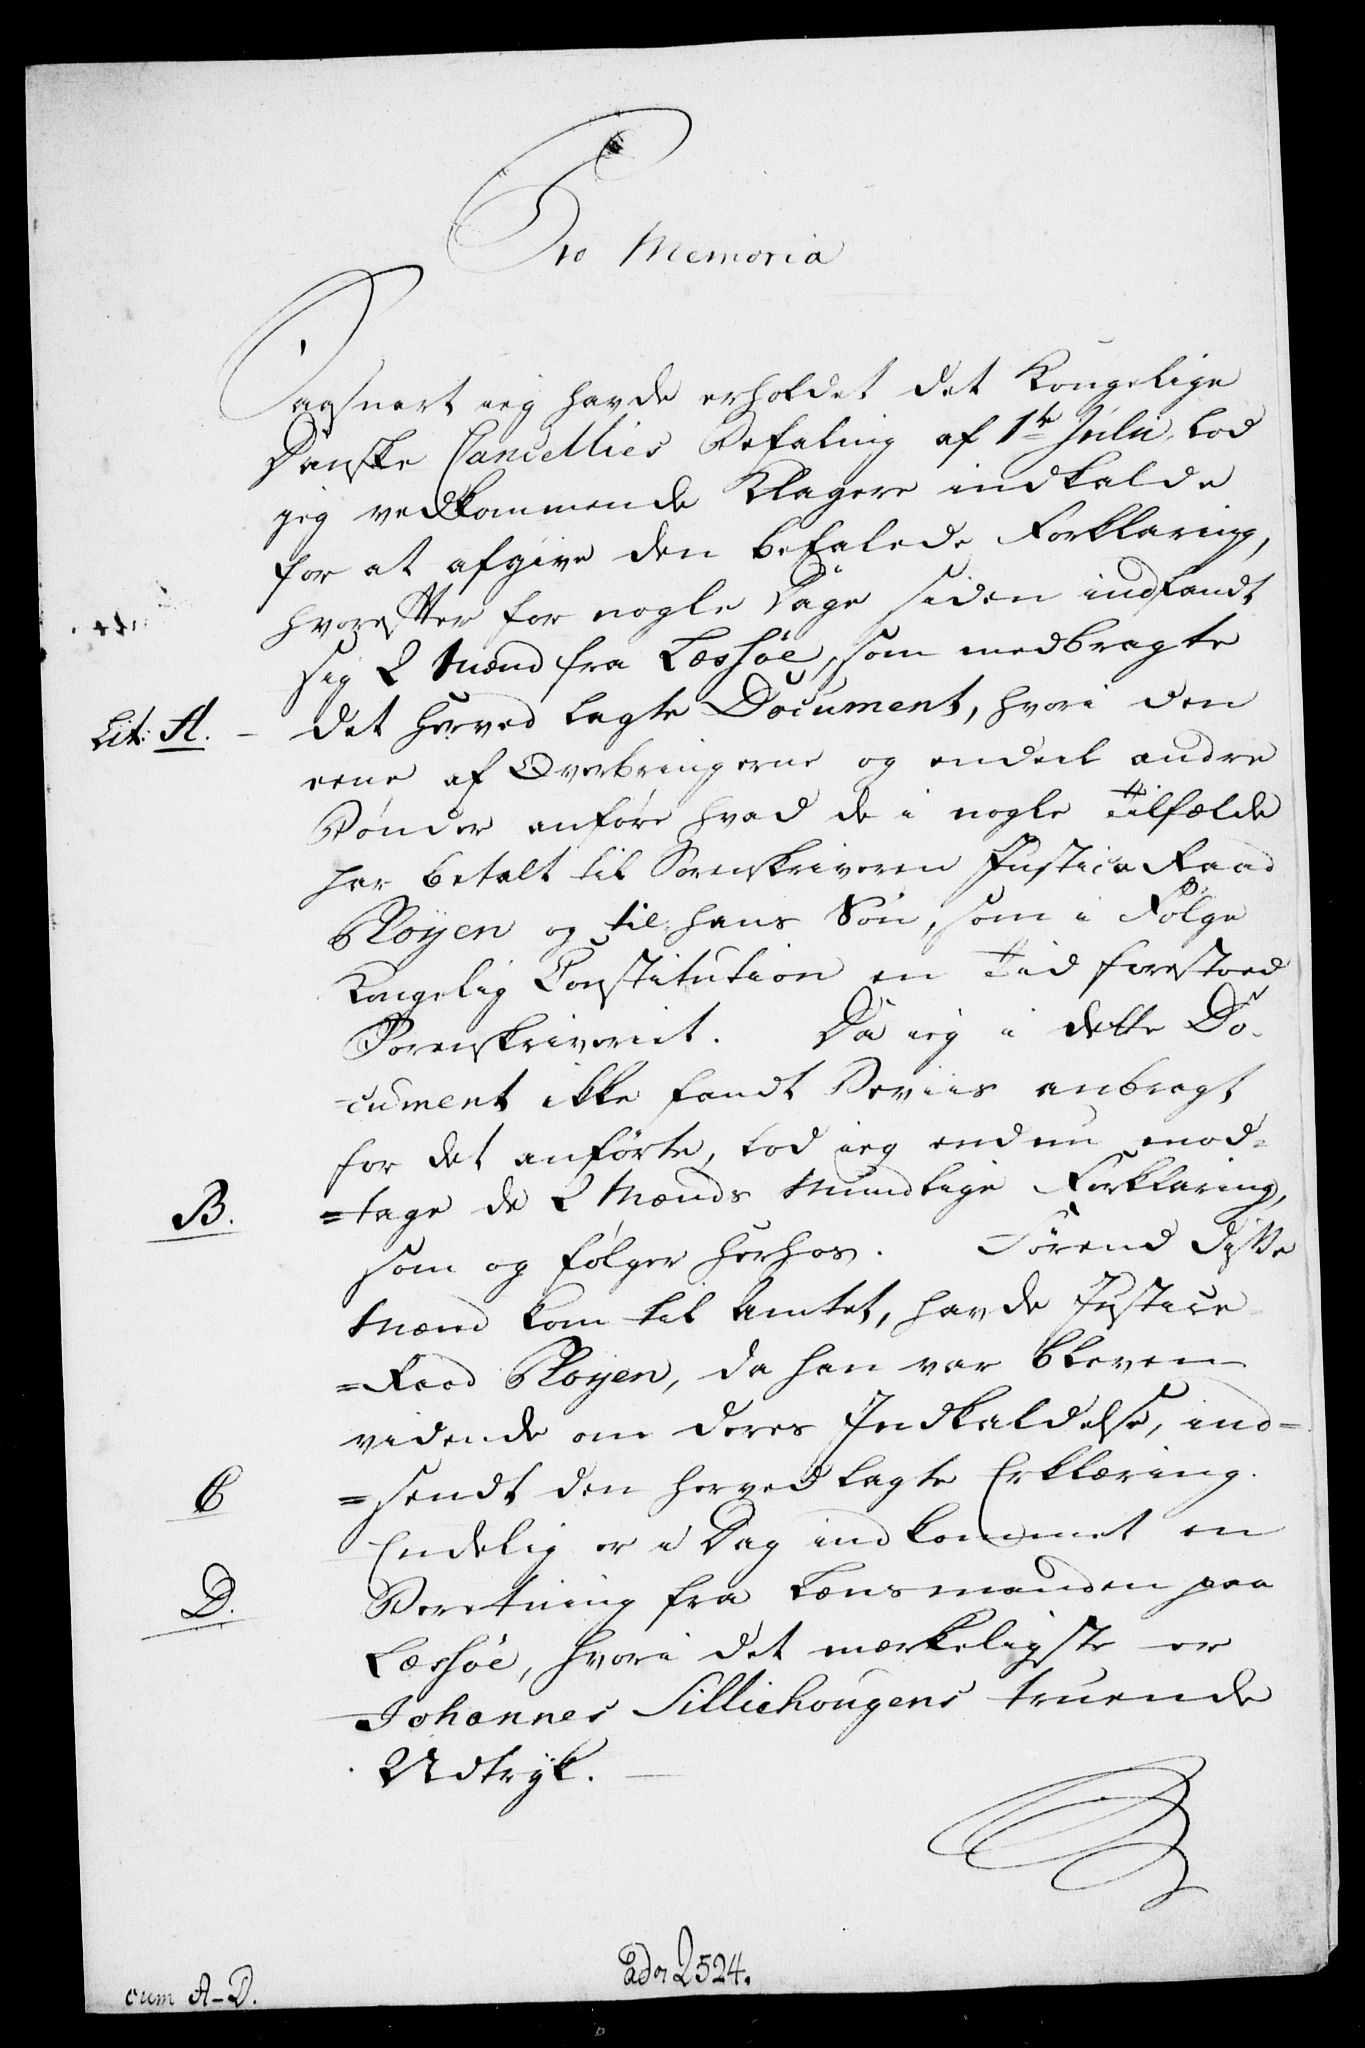 Pro Memoria
Saasnart ieg havde erholdet det Kongelige
Danske Cancellies Befaling af 1te Julii, lod
jeg vedkommende Klagere indkalde
for at afgive den befalede Forklaring,
hvorefter for nogle Dage siden indfandt
sig 2 Mænd fra Læssøe, som medbragte
Lit: A. det herved lagte Document, hvori den
eene af Overbringerne og endeel andre
Bønder anføre hvad de i nogle Tilfælde
har betalt til Sorenskriveren Justice Raad
Ployen og til hans Søn, som i Følge
Kongelig Constitution en Tid forestoed
Sorenskriveriet. Da ieg i dette Do-
cument ikke fandt Beviis anbragt
for det anførte, lod ieg endnu mod=
B. =tage de 2 Mænds Mundtlige Forklaring,
som og følger herhos. Førend disse
Mænd kom til Amtet, havde Justice
=Raad Ployen, da han var bleven
vidende om deres Indkaldelse, ind=
C =sendt den herved lagte Erklæring.
Endelig er i Dag indkommet en
D. Beretning fra Lænsmanden paa
Læssøe, hvori det mærkeligste er
Johannes Sillichougens truende
Udtryk.
2524.
cum A-D.